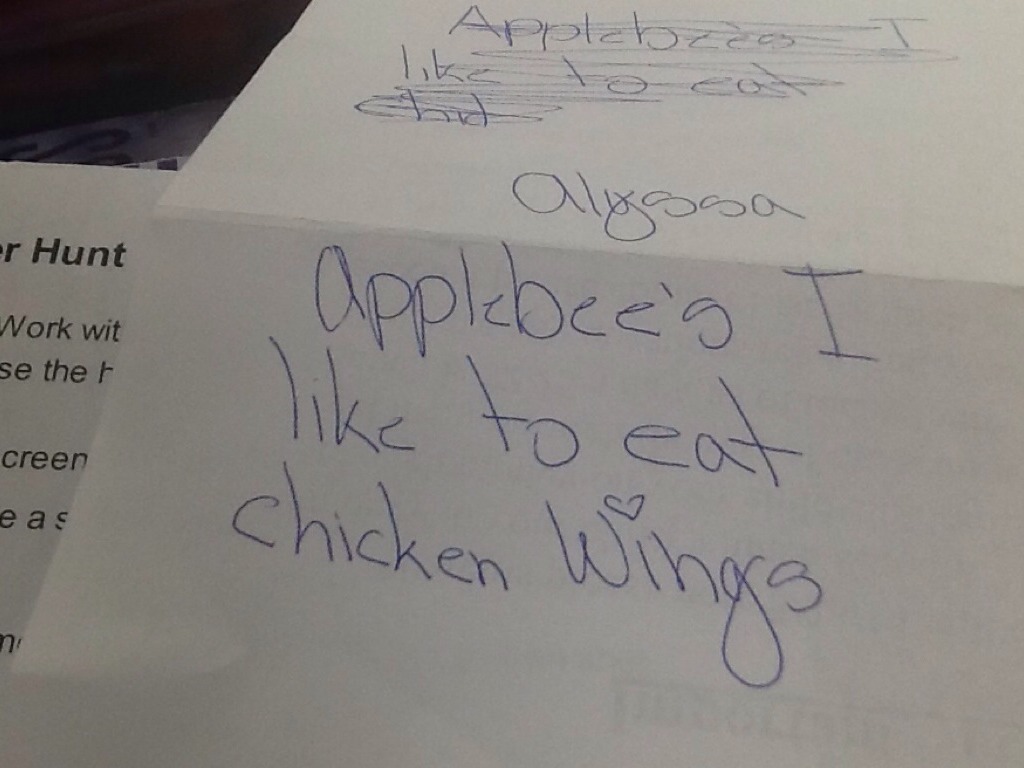 Applebee's I
like to eat
alyssa
applebee's I
like to eat
chicken Wings
er Hunt
Work wit
se the h
creen
e a s